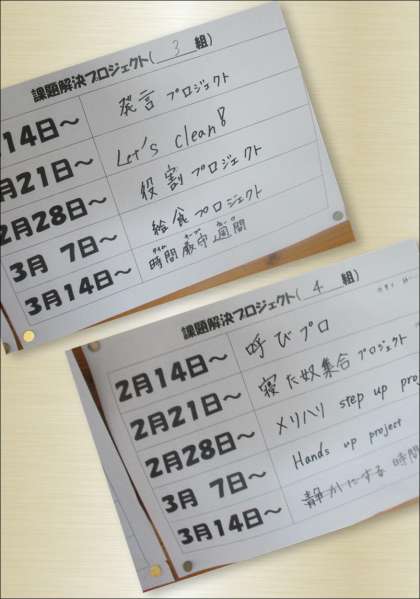 課題解決プロジェクト( 3 組)
14日〜 発言プロジェクト
月21日〜 Let's clean!
2月28日〜 役割プロジェクト
3月 7日〜 給食プロジェクト
3月14日〜 時間厳守週間
課題解決プロジェクト( 4 組)
2月14日〜 呼びプロ
2月21日〜 寝た奴集合プロジェクト
2月28日〜 メリハリ step up pro
3月 7日〜 Hands up project
3月14日〜 静かにする 時間